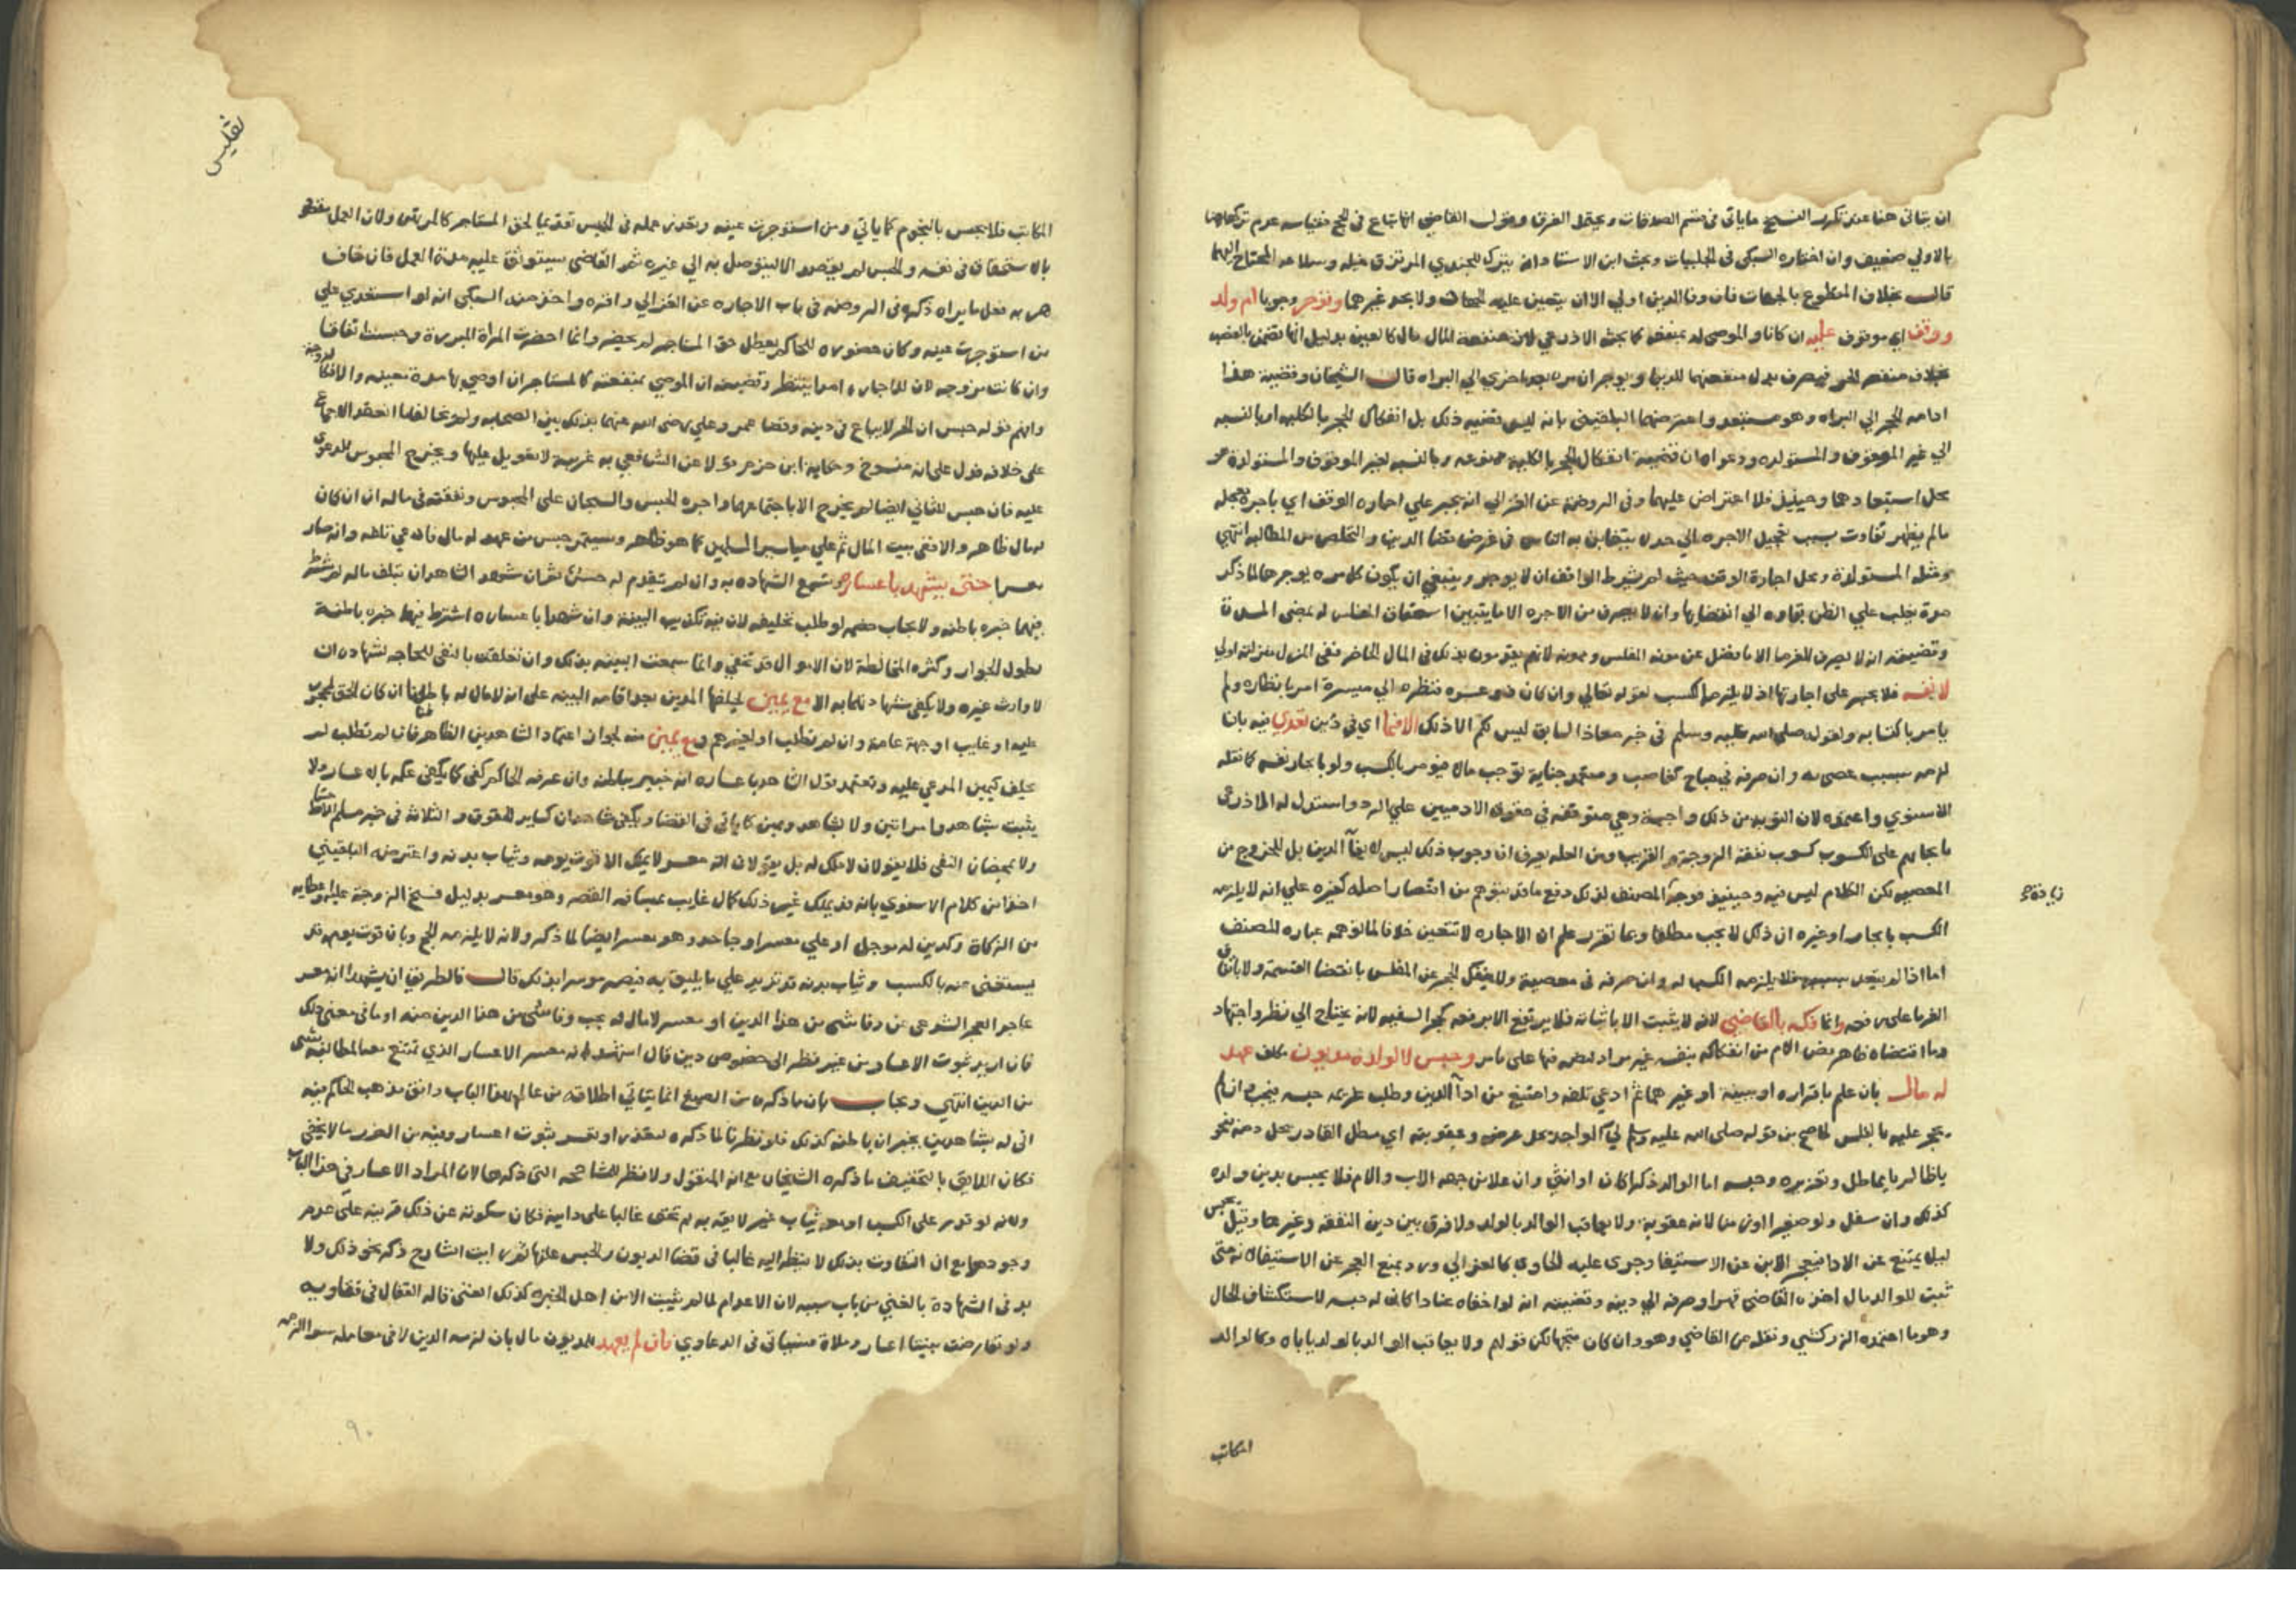 ان يتاتى هنا عند تكرر النسخ ما ياتي في قسم الصدقات ويحتمل الفرق وقول القاضي
بالاولى ضعيف وان اختاره السبكي في الحلبيات وبحث ابن الاستاذ انه يترك للجندي المرتزق خيله وسلاحه المحتاج اليهما
قال بخلاف المتطوع بالجهاد فان وفا الدين اولى الا ان يتعين عليه الجهاد ولا يجد غيرهما وتوجر وجوبا ام ولد
ووقف اي موقوف عليه ان كانا والموصى له بمنفعة كما بحثه الاذرعي لان منفعة المال مال كالعين بدليل انها تضمن بالغصب
بخلاف منفعة الحر فيصرف بدل منفعتهما للدين ويوجران مرة بعد اخرى الى البراه قال الشيخان وقضية هذا
ادامة الحجر الى البراه وهو مستبعد واعترضهما البلقيني بانه ليس قضية ذلك بل انفكاك الحجر بالكلية او بالنسبه
الى غير الموقوف والمستولده ودعواه ان قضيته انفكاك الحجر بالكلية ممنوعه وبالنسبه لغير الموقوف والمستولدة هو
محل استبعادهما وحينيذ فلا اعتراض عليهما وفي الروضة عن الغزالي انه يجبر علي اجاره الوقف اي باجرة معجله
مالم يظهر تفاوت بسبب تعجيل الاجره الي حد لا يتغابن به الناس في غرض قضا الدين والتخلص من المطالبه انتهي
ومثله المستولدة ومحل اجارة الوقف حيث لم يشرط الواقف ان لا يوجر وينبغي ان يكون كل مره يوجرها لما ذكر
مدة يغلب علي الظن بقاوه الي انقضايها وان لا يصرف من الاجره الا ما يتبين استحقاق المفلس له بمضى المدة
وقضيته انه لا يصرف للغرما الا ما يفضل عن مونه المفلس وممونه لانهم يقدمون بذلك في المال الحاضر ففي المنزل منزلته اولي
لا نفسه فلا يجبر على اجارتها اذ لا يلزمه الكسب لقوله تعالي وان كان ذو عسره فنظرة الي ميسرة امر بانظاره ولم
يامر باكتسابه ولقوله صلى الله عليه وسلم في خبر معاذ السابق ليس لكم الا ذلك اي في دين تعدي فيه بان
لزمه بسبب عصى به وان صرفه في مباح كغاصب ومتعمد جناية توجب مالا فيومر بالكسب ولو بايجار نفسه كما نقله
الاسنوي واعتمدوه لان التوبه من ذلك واجبة وهي متوقفه في حقوق الادميين علي الرد واستدل له الاذرعي
بايجابهم على الكسوب كسوب نفقة الزوجة والقريب ومن العله يعرف ان وجوب ذلك ليس لايفآ الدين بل للخروج من
المعصيه لكن الكلام ليس فيه وحينيذ فوجه المصنف لذلك دفع ما قد يتوهم من اقتصار اصله كغيره علي انه لا يلزمه
الكسب بايجار او غيره ان ذلك لا يجب مطلقا وبما تقرر علم ان الاجاره لا تتعين خلافا لما توهمه عباره المصنف
اما اذا لم يتعد بسببه فلا يلزمه الكسب له وان صرفه في معصية ولا ينفك الحجر عن المفلس بانقضا القسمة ولا باتفاق
الغرما على رفعه وانما فكه بالقاضي لانه لا يثبت الا باثباته فلا يرتفع الا برفعه كحجر السفيه لانه يحتاج الي نظر واجتهاد
وما اقتضاه ظاهر نص الام من انفكاكه بنفسه غير مراد لنصه فيها على مامر وحبس لا لوالد مديون مكلف عهد
له مال بان علم باقراره او ببينة او غيرهما ثم ادعي تلفه وامتنع من ادآ الدين وطلب غريمه حبسه
حجر عليه بالفلس لما صح من قوله صلى الله عليه وسلم لي الواجد يحل عرضه وعقوبته اي مطل القادر يحل ذمه بنحو
يا ظالم يا مماطل وتعزيره وحبسه اما الوالد ذكرا كان او انثى وان علا من جهة الاب والام فلا يحبس بدين ولده
كذلك وان سفل ولو صغيرا او زمنا لانه عقوبة ولا يعاقب الوالد بالولد ولا فرق بين دين النفقه وغيرها وقيل يحبس
ليلا يمتنع عن الادا فيعجز الابن عن الاستيفا وجرى عليه الحاوي كالغزالي ورد بمنع العجز عن الاستيفا لانه متى
ثبت للوالد مال اخذه القاضي قهرا وصرفه الي دينه وقضيته انه لو اخفاه عنادا كان له حبسه لاستكشاف الحال
وهو ما اعتمده الزركشي ونقله عن القاضي وهو وان كان متجها لكن قولهم ولا يعاقب الوالد بالولد ياباه وكالوالد
زيادة
المكاتب
تفليس
المكاتب فلا يحبس بالنجوم كما ياتي ومن استوجرت عينه وتعذر عمله في الحبس تقديما لحق المستاجر كالمرتهن ولان العمل مقصود
بالاستحقاق في نفسه والحبس لم يقصد الا ليتوصل به الي غيره ثم القاضى يستوثق عليه مدة العمل فان خاف
هربه فعل ما يراه ذكره في الروضه في باب الاجاره عن الغزالي واقره واخذ منه السبكي انه لو استعدي علي
من استوجرت عينه وكان حضوره للحاكم يعطل حق المستاجر لم يحضر وانما احضرت المراة المبرزة وحبست اتفاقا
وان كانت مزوجه لان للاجاره امدا ينتظر وقضيته ان الموصي بمنفعته كالمستاجر ان اوصي بها مدة معينه والا فكالزوجة
وافهم قوله حبس ان الحر لا يباع في دينه وقضا عمر وعلي رضى الله عنهما بذلك بين الصحابه ولم يخالفا انعقد الاجماع
على خلافه فدل على انه منسوخ وحكاية ابن حزم قولا عن الشافعي به غريبة لا تعويل عليها ويخرج المحبوس للدعوى
عليه فان حبس للثاني ايضا لم يخرج الا باجتماعهما واجره الحبس والسجان على المحبوس ونفقته في ماله ان كان
له مال ظاهر والا ففي بيت المال ثم علي مياسير المسلمين كما هو ظاهر ويستمر حبس من عهد له مال فادعي تلفه وانه صار
معسرا حتى يشهد باعساره وتسمع الشهاده به وان لم يتقدم له حبس ثم ان شهد الشاهدان بتلف ماله لم يشترط
فيهما خبره باطنه ولا يجاب خصمه لو طلب تحليفه لان فيه تكذيب البينة وان شهدا باعساره اشترط فيها خبره باطنة
بطول الجوار وكثره المخالطة لان الاموال قد تخفي وانما سمعت البينه بذلك وان تعلقت بالنفي للحاجه كشهاده ان
لا وارث غيره ولا يكفى شهادتهما به الا مع يمين يحلفها المدين بعد اقامه البينه على انه لا مال له باطنا ان كان الحق لمحجور
عليه او غايب او جهة عامة وان لم تطلب او لغيرهم ومع يمين منه لجواز اعتماد الشاهدين الظاهر فان لم تطلب لم
يحلف كيمين المدعي عليه وتعتمد قول الشاهد باعساره انه خبير بباطنه وان عرفه الحاكم كفى كما يكفى علمه باعساره ولا
يثبت بشاهد وامراتين ولا بشاهد ويمين كما ياتي في القضا ويكفى شاهدان كساير الحقوق والثلاثة في خبر مسلم للاحتياط
ولا يمحضان النفى فلا يقولان لا ملك له بل يقولان انه معسر لا يملك الا قوت يومه وثياب بدنه واعترضه البلقيني
اخذا من كلام الاسنوي بانه قد يملك غير ذلك كمال غايب بمسافه القصر وهو معسر بدليل فسخ الزوجة عليه واعطايه
من الزكاة وكدين له موجل او علي معسر او جاحد وهو معسر ايضا لما ذكر ولانه لا يلزمه الحج وبان قوت يومه قد
يستغنى عنه بالكسب وثياب بدنه قد تزيد علي ما يليق به فيصير موسرا بذلك قال فالطريق ان يشهد انه معسر
عاجز العجز الشرعي عن وفا شى من هذا الدين او معسر لا مال له يجب وفا شى من هذا الدين منه او ما في معنى ذلك
فان اريد ثبوت الاعسار من غير نظر الى خصوص دين قال اشهد انه معسر الاعسار الذي تمتنع معه المطالبه بشى
من الدين انتهى ويجاب بان ما ذكره من الصيغ انما يتاتي اطلاقه من عالم بهذا الباب وافق مذهب الحاكم فيه
انى له بشاهدين يخبران باطنه كذلك فلو نظرنا لما ذكره لتعذر او تعسر ثبوت اعسار وفيه من الضرر ما لا يخفي
فكان اللايق بالتخفيف ما ذكره الشيخان مع انه المنقول ولا نظر للمشاححه التى ذكرها لان المراد الاعسار في هذا الباب
ولانه لو قدر على الكسب او معه ثياب غير لايقه به لم تخف غالبا على داينه فكان سكوته عن ذلك قرينه على عدم
وجودهما مع ان التفاوت بذلك لا ينظر اليه غالبا في قضا الديون والحبس عليها ثم رايت الشارح ذكر نحو ذلك ولا
بد في الشهادة بالغنى من بيان سببه لان الاعدام لما لم يثبت الا من اهل الخبره كذلك الغنى قاله القفال في فتاويه
ولو تعارضت بينتا اعسار وملاة فسياتي في الدعاوي فان لم يعهد للمديون مال بان لزمه الدين لا في معامله سوا الزمه
٩٠